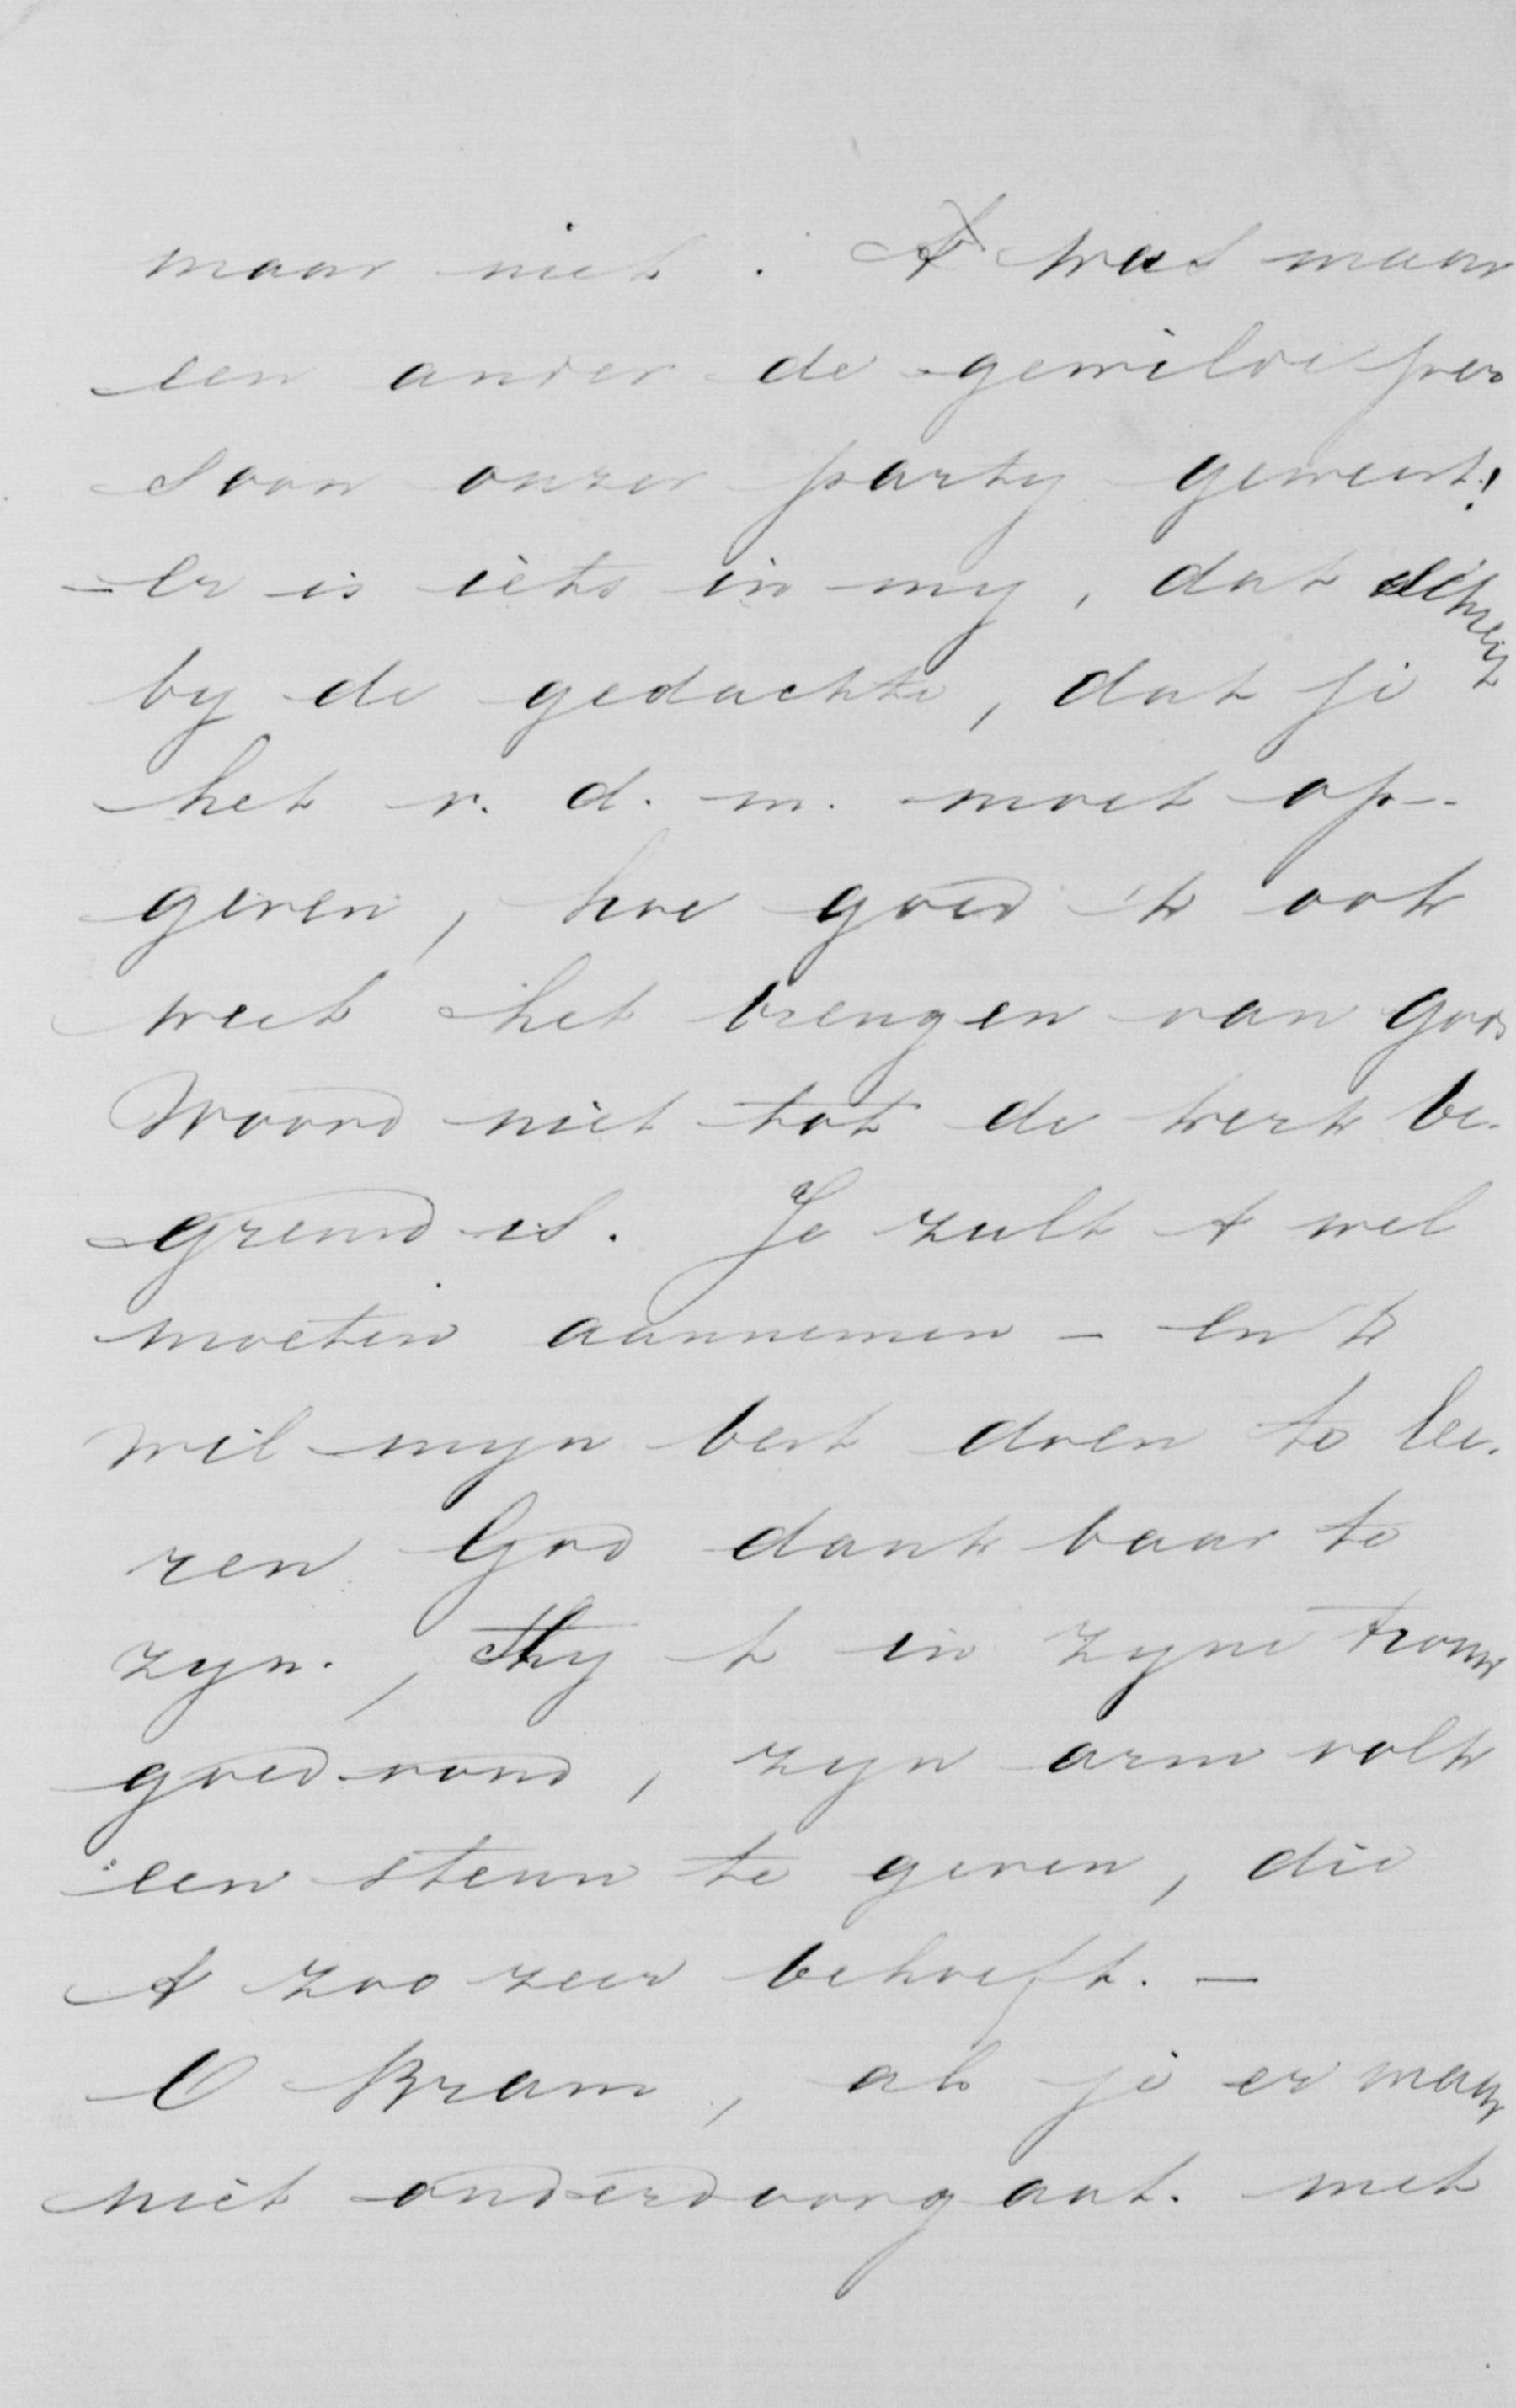 maar niet. 't was maar
een ander de gewilde per
soon onzer party geweest!
er is iets in my, dat schreit
by de gedachte, dat je
het v. d. m. moet op-
geven, hoe goed 'k ook
weet het brengen van Gods
Woord niet tot de kerk be-
grensd is. Je zult 't wel
moeten aannemen - en 'k
wil myn best doen te lee-
ren God dankbaar te
zyn, Hy 't in zyne trouw
goedvond, zyn arm volk
een steun te geven, die
't zoo zeer behoeft. -
O Bram, als je er maar
niet onderdoorgaat. met